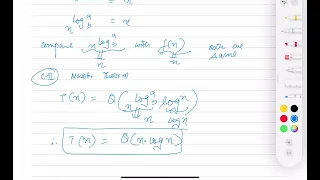 n^{log_b a} = n
compare n^{log_b a} with f(n) both are same
n n
C-II Master Theorem
T(n) = θ(n^{log_b a} · log n)
n log n
∴ T(n) = θ(n · log n)